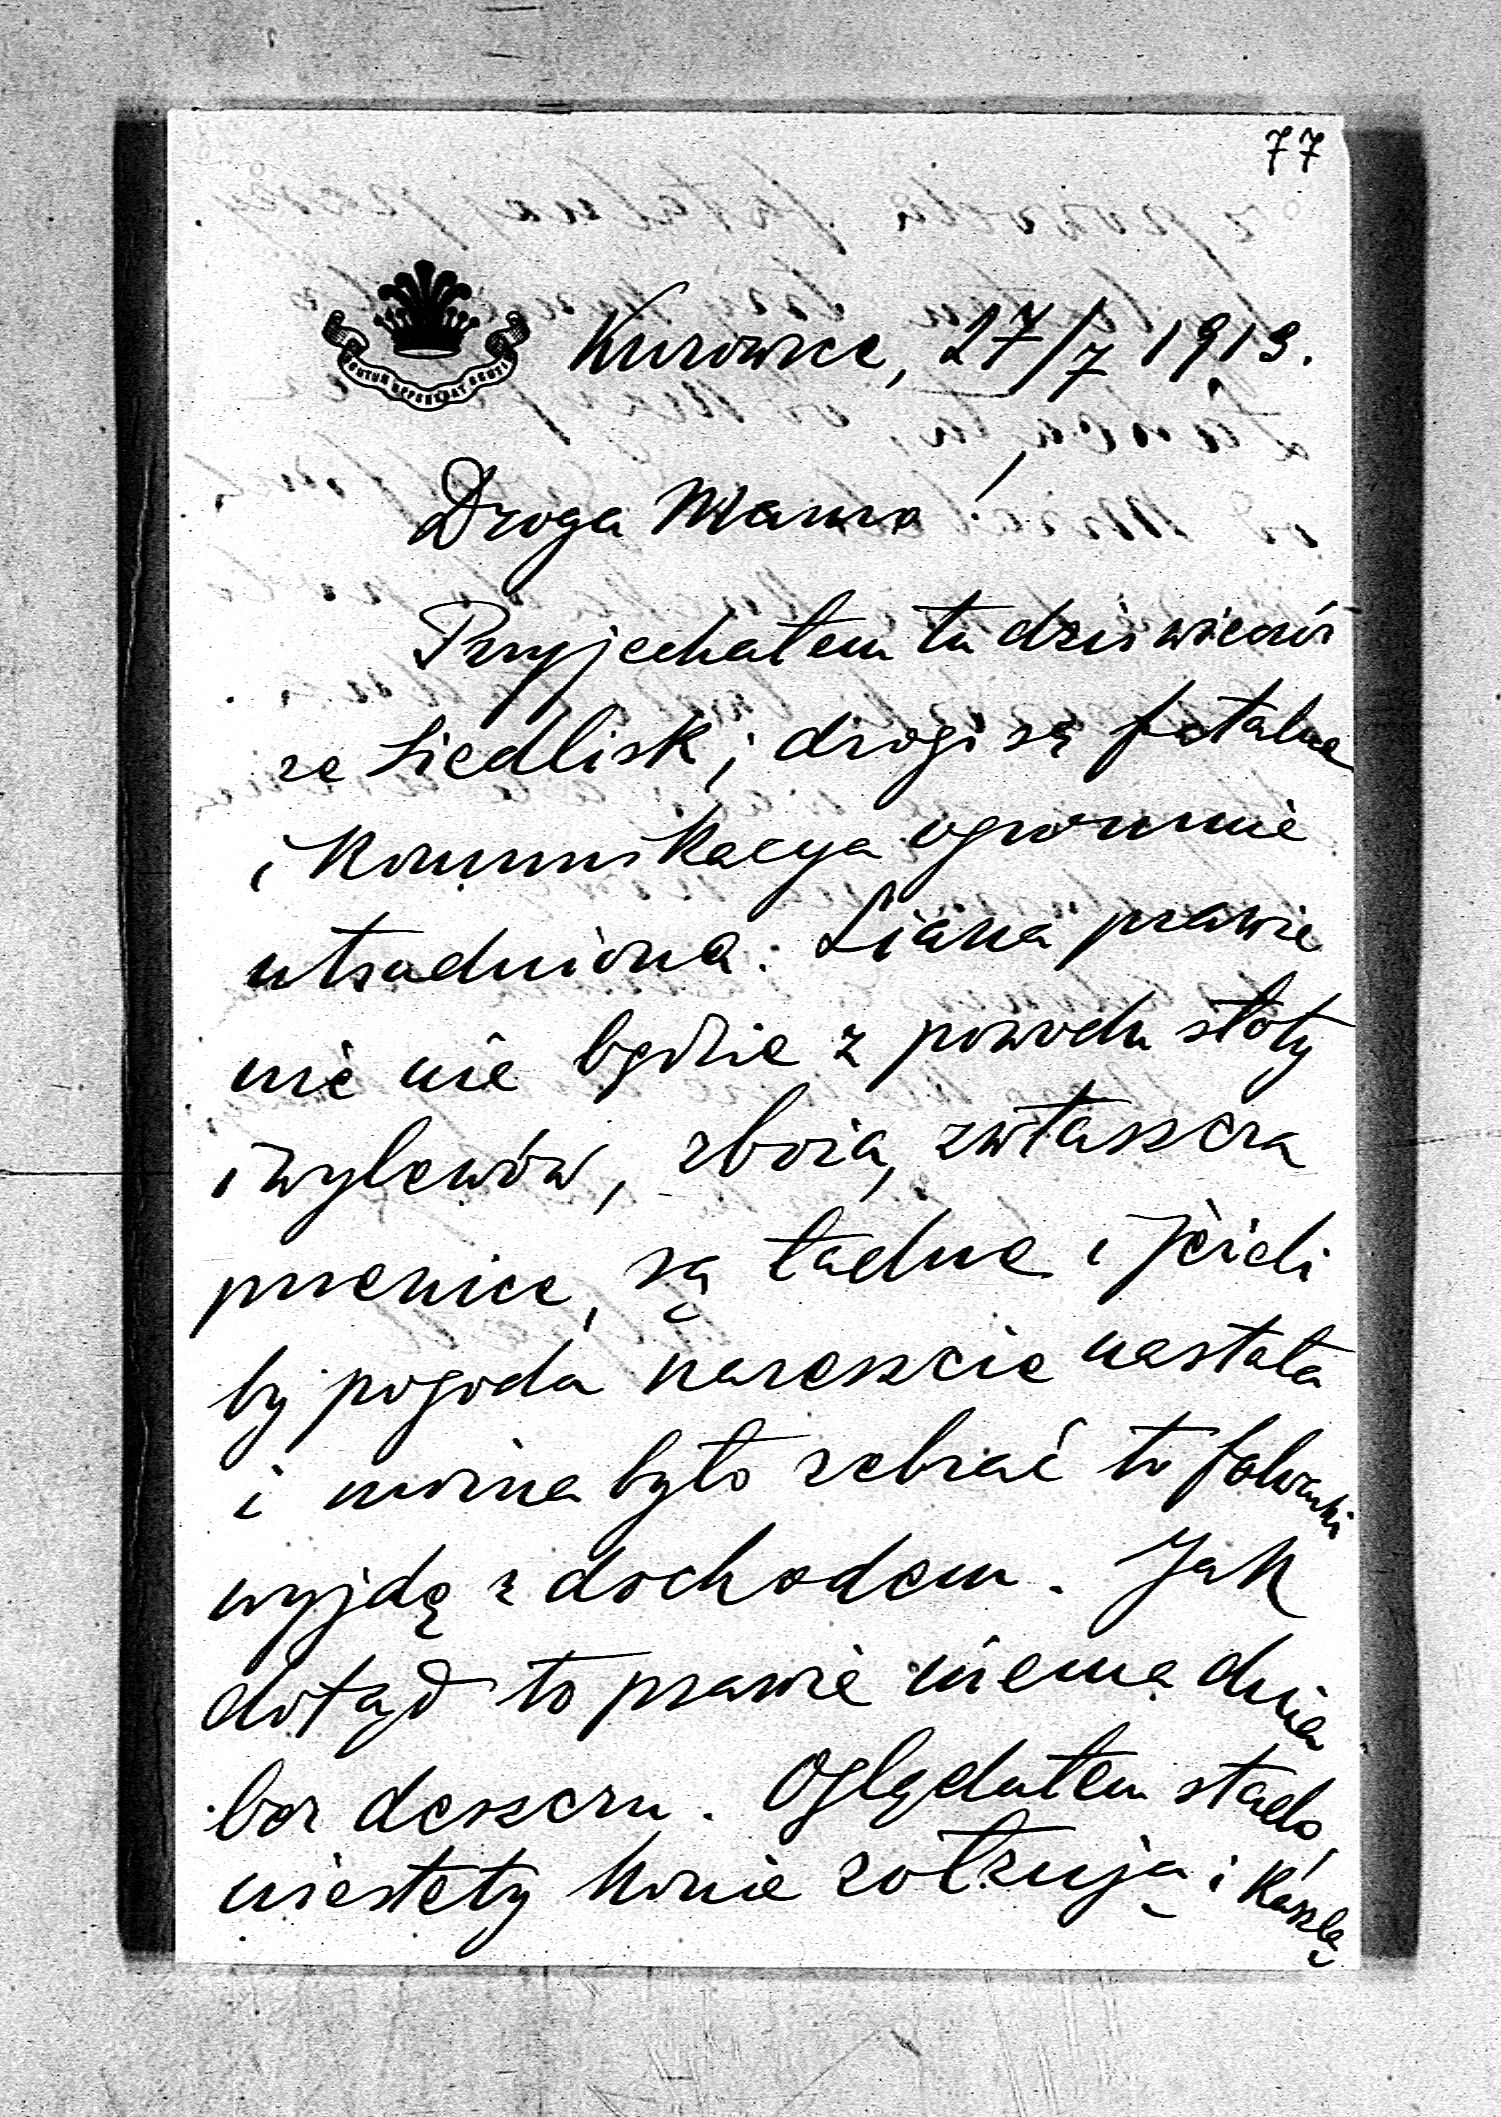 77
Kurowice, 27/7 1913.
Droga Mamo!
Przyjechałem tu dziś wieczór
ze Siedlisk; drogi są fatalne
i komunikacya ogromnie
utrudniona. Siana prawie
nic nie będzie z powodu słoty
i wylewów, zboża, zwłaszcza
pszenice, są ładne i jeżeli
by pogoda nareszcie nastała
i można było zebrać to folwarki
wyjdę z dochodem. Jak
dotąd to prawie niema dnia
bez deszczu. Oglądałem stado,
niestety konie zołzują i kaszlą